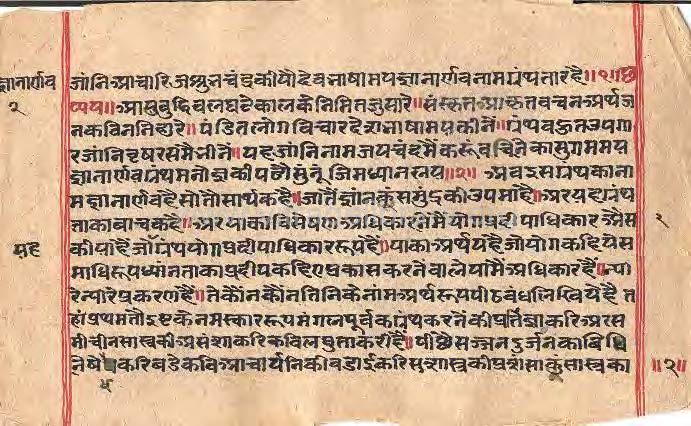 ज्ञानार्णव
२
जांनिआचारिजशुनचंद्रकीयौदेवनाषामयज्ञानार्णवनामग्रंथतारहै॥१॥छ
प्पय॥आयुबुद्धिबलघटेकालकेनिमितजुसारे॥संस्कृतप्राकृतवचनअर्थज
नकविननिहारे॥पंडितलोगविचारदेशनाषामयकीनें॥ग्रंथबहुतउपगा
रजांनिवृषरसमैंनीनें॥यहजांनिनामजयचंदमैंकरूंवचनिकासुगममय
ज्ञानार्णवग्रंथमनोज्ञकीपढौसुनूंजिमध्यानलय॥२॥अबइसग्रंथकाना
मज्ञानार्णवहैसोतौसार्थकहै॥जातैंज्ञांनकूंसमुंद्रकीउपमांहै॥अरयहग्रंथ
ताकावाचकहै॥अरयाकाविशेषणअधिकारनिमैंयोगप्रदीपाधिकारऔसै
कीयाहैजोग्रंथयोगप्रदीपाधिकाररूपहै॥याकाअर्थयहैजोयोगकहियेस
माधिरूपध्यांनताकाप्रदीपकहिएप्रकासकरनेंवालेयामैंअधिकारहैं॥न्या
रेन्यारेप्रकरणहैं॥तेकौंनकौंनतिनिकेनांमअर्थरूपपीठबंधलिखियेहै त
हांप्रथमतौइष्टकेनमस्काररूपमंगलपूर्वकग्रंथकरनेंकीप्रतिज्ञाकरिअरस
मीचीनसास्त्रकीप्रसंशाकरिकविलघुताकरीहै॥पीछैसज्जनदुर्जनकाविधि
निषेधकरिबडेकविआचार्यनिकीबडाईकरिसुशास्त्रकीप्रशंसाकूंसास्त्रका
॥२॥